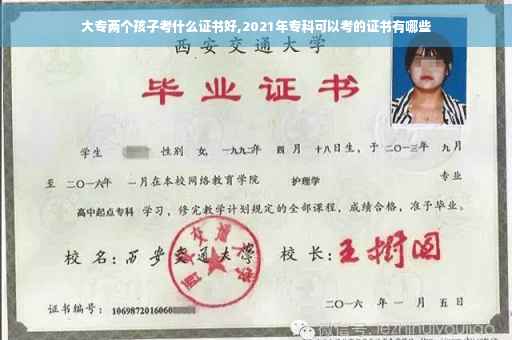 大专两个孩子考什么证书好,2021年专科可以考的证书有哪些
西安交通大学
毕业证书
学生 性别 女, 一九九二年 四 月 十八日生, 于 二〇一三年 九月
至 二〇一六年 一月在本校网络教育学院 护理学 专业
高中起点专科 学习, 修完教学计划规定的全部课程, 成绩合格, 准予毕业。
校 名: 西安交通大学 校 长: 王树国
西安交通大学
证书编号: 1069872016060
二〇一六 年 一 月 五 日
微信号: jezhihuiyoujiao